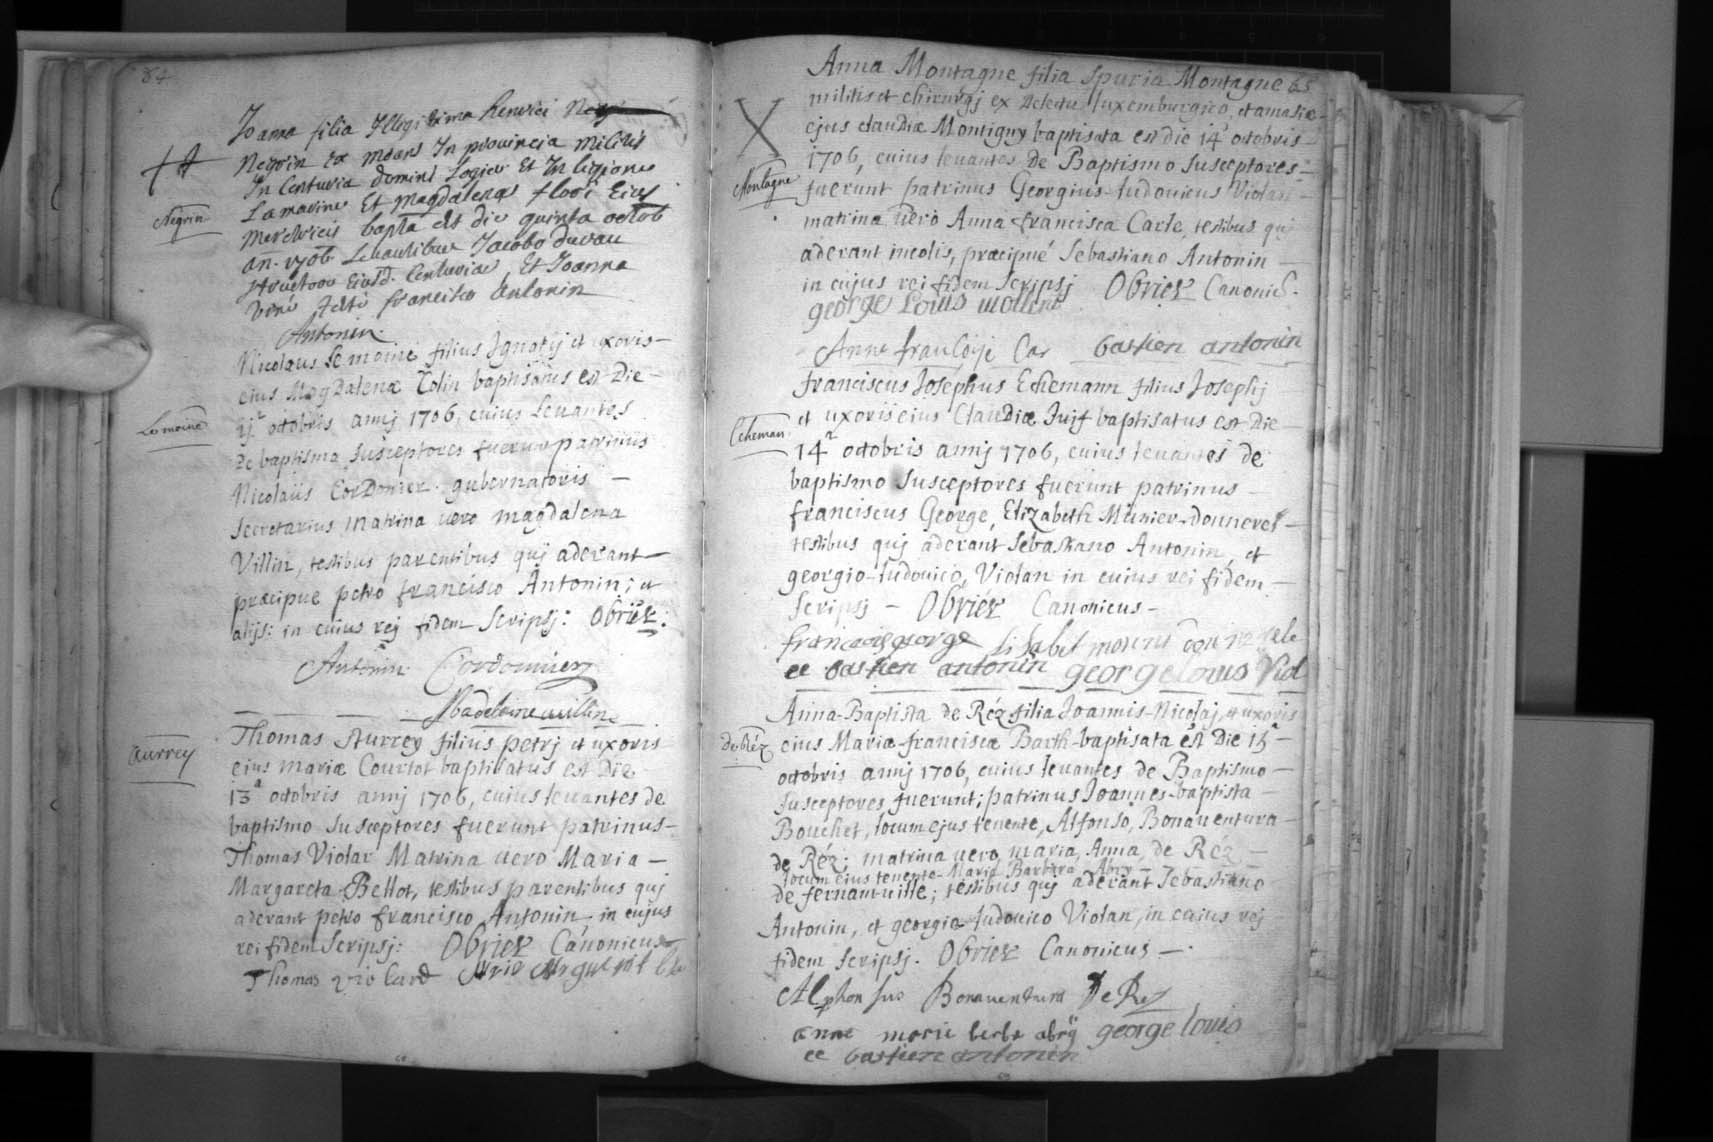 84
Joanna filia Illegitima henrici
Negrin Ex moans In provincia militis
In Centuria domini Logier Et In legione
Lamarine Et Magdalenas floor Eius
Meretricis bapta Est die quinta octob
an. 1706 Levantibus Jacobo duvau
structore Eiusd. Centuriae, Et Joanna
viné teste francisco Antonin
Antonin
Negrin
Nicolaus Lemoine filius Ignatij et uxoris
eius Magdalenæ Colin baptisatus est Die
octobris anni 1706, cuius Levantes
De baptismo susceptores fuerunt patrinus
Nicolaus Cordonier gubernatoris
Secretarius Matrina uero magdalena
Villin, testibus parentibus qui aderant
præcipue petro francisco Antonin; et
alijs: in cuius rej fidem Scripsj: Obriet.
Lemoine
Antonin Cordonnier
Madeleine uillin
Thomas Aurrey filius petrj et uxoris
eius mariæ Courtot baptisatus est Die
13ª octobris annj 1706, cuius leuantes de
baptismo susceptores fuerunt patrinus
Thomas Violar Matrina uero Maria
Margareta Bellot, testibus parentibus quj
aderant petro francisco Antonin in cujus
rei fidem Scripsj: Obriet Canonicus
Aurrey
Thomas violard
Anna Montagne filia Spuria Montagne 65
militis et chirurgj ex luxemburgico, et amasiæ
ejus claudiæ Montigny baptisata est die 14ª octobris
1706, cuius leuantes de Baptismo Susceptores
fuerunt patrinus Georgius Ludouicus Violan
matrina uero Anna francisca Carle, testibus qui
aderant incolis, præcipué Sebastiano Antonin
in cujus rei fidem Scripsj Obriet Canonic.
Montagne
george Louis
Anne françoise Car bastien antonin
franciscus Josephus Echemann filius Josephj
et uxoris eius Claudiæ Juif baptisatus est Die
14ª octobris annj 1706, cuius leuantes de
baptismo Susceptores fuerunt patrinus
franciscus George, Elizabeth Munier donneret
testibus quj aderant Sebastiano Antonin, et
georgio ludouico, Violan in cuius rei fidem
Scripsj Obriet Canonicus
Echeman
francois george
bastien antonin george louis Viol
Anna Baptista de Réz filia Joannis Nicolaj, et uxoris
eius Mariæ franciscæ Barth baptisata est Die 15ª
octobris annj 1706, cuius leuantes de Baptismo
Susceptores fuerunt; patrinus Joannes baptista
Bouchet, locum ejus tenente, Alfonso, Bonauentura
de Réz; matrina uero, maria, Anna, de Réz
locum eius tenente Maria Barbara Abry
de fernamuille; testibus quj aderant Sebastiano
Antonin, et georgio ludouico Violan, in cuius rej
fidem Scripsj. Obriet Canonicus
de Réz
Alphonsus Bonauentura De Rez
anne marie berbe abrÿ george louis
bastien antonin